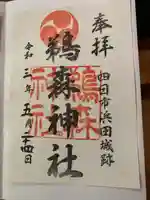 奉拝
四日市浜田城跡
鵜森神社
鵜森神社
令和三年五月二四日